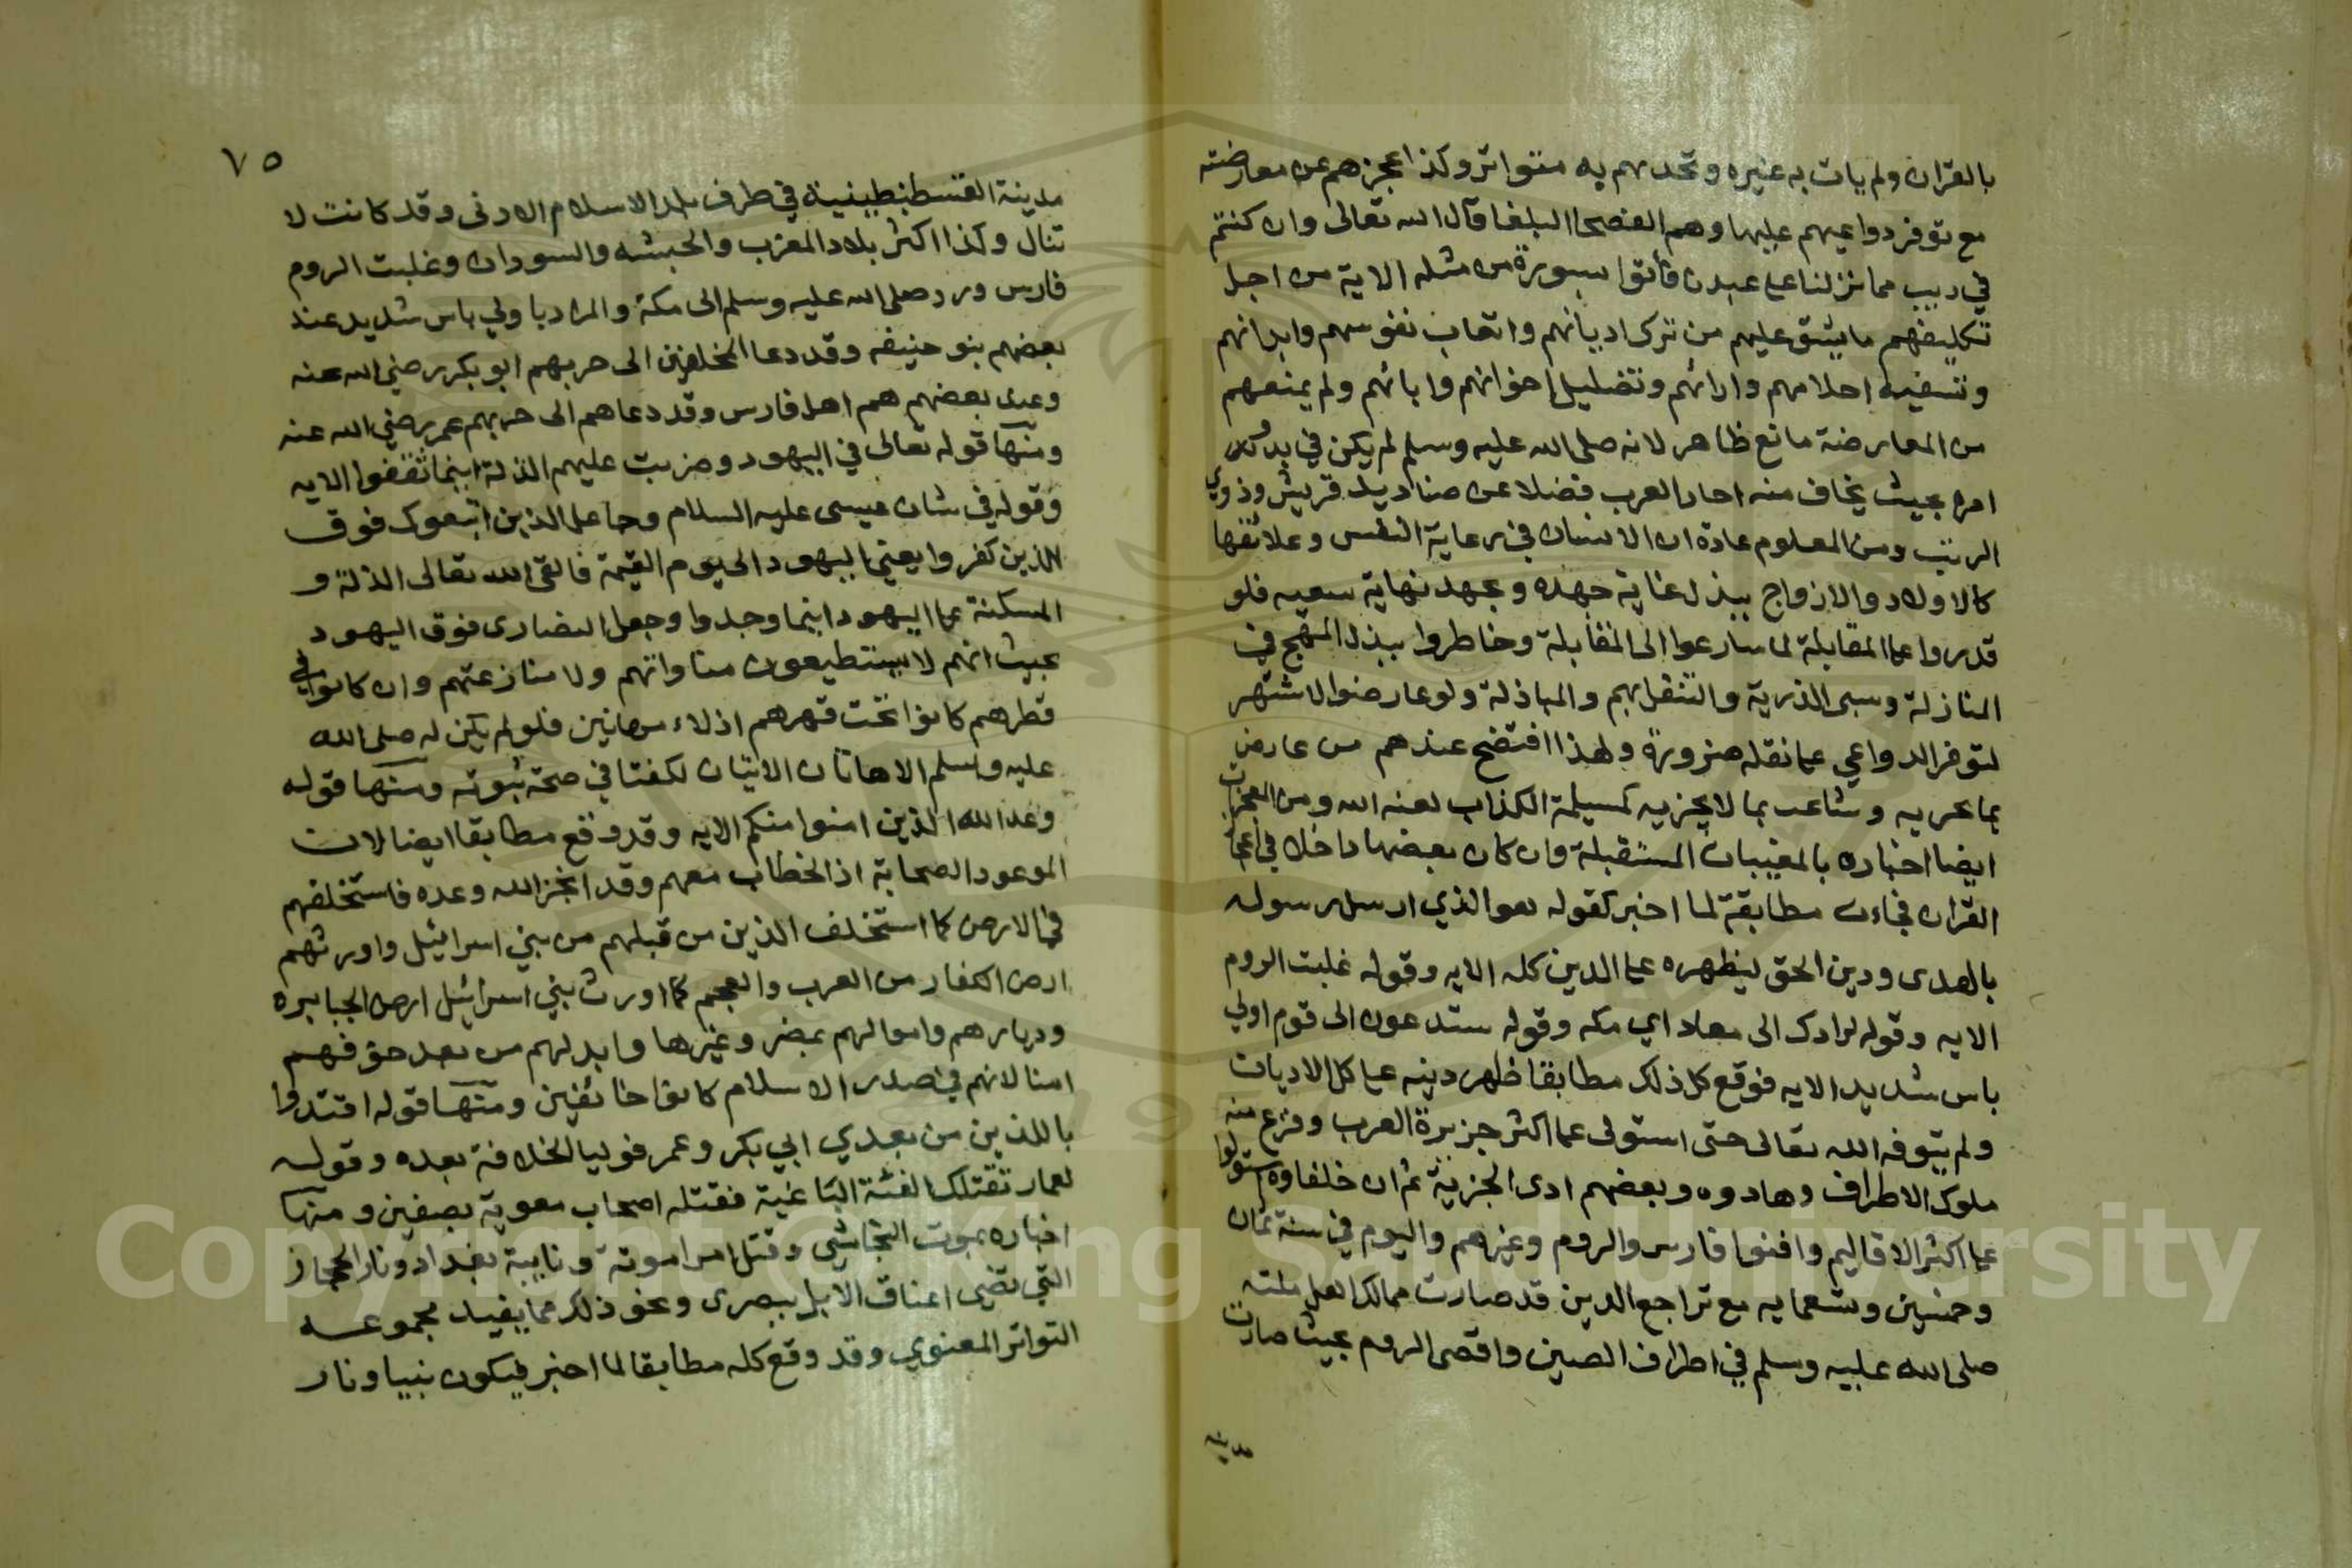 بالقران ولم يات به غيره وتحديهم به متواتر وكذا عجزهم عن معارضته
مع توفر دواعيهم عليها وهم الفصحا البلغا قال الله تعالى وان كنتم
في ريب مما نزلنا على عبدنا فأتوا بسورة من مثله الاية من اجل
تكليفهم ما يشق عليهم من ترك اديانهم واتعاب نفوسهم وابدانهم
وتسفيه احلامهم وارائهم وتضليل اخوانهم وابائهم ولم يمنعهم
من المعارضة مانع ظاهر لانه صلى الله عليه وسلم لم يكن في بدو
امره بحيث يخاف منه احاد العرب فضلا عن صناديد قريش وذوي
الرتب ومن المعلوم عادة ان الانسان في رعاية النفس وعلائقها
كالاولاد والازواج يبذل غاية جهده ويجهد نهاية سعيه فلو
قدروا على المقابلة لما سارعوا الى المقابلة وخاطروا ببذل المهج في
المنازلة وسبى الذرية والتنقل بهم والمباذلة ولو عارضوا لاشتهر
لتوفر الدواعي على نقله ضرورة ولهذا افتضح عندهم من عارض
بما عري به وشاعت بما لا يجزيه كمسيلمة الكذاب لعنه الله ومن المعجزات
ايضا اخباره بالمغيبات المستقبلة وان كان بعضها داخلا في اعجاز
القران فجاءت مطابقة لما اخبر كقوله هو الذي ارسل رسوله
بالهدى ودين الحق ليظهره على الدين كله الايه وقوله غلبت الروم
الايه وقوله لرادك الى معاد اي مكه وقوله ستدعون الى قوم اولي
باس شديد الايه فوقع كل ذلك مطابقا ظهر دينه على كل الاديان
ولم يتوفه الله تعالى حتى استولى على اكثر جزيرة العرب وفزع منه
ملوك الاطراف وهادوه وبعضهم ادى الجزية ثم ان خلفاوه استولوا
على اكثر الاقاليم وافنوا فارس والروم وغيرهم واليوم في سنة ثمان
وخمسين وتسعمايه مع تراجع الدين قد صارت ممالك اهل ملته
صلى الله عليه وسلم في اطراف الصين واقصى الروم بحيث صارت
مدينه
٧٥
مدينة القسطنطينية في طرف بلد الاسلام الادنى وقد كانت لا
تنال وكذا اكثر بلاد المغرب والحبشه والسودان وغلبت الروم
فارس ورد صلى الله عليه وسلم الى مكة والمراد باولي باس شديد عند
بعضهم بنو حنيفه وقد دعا المخلفين الى حربهم ابو بكر رضي الله عنه
وعدى بعضهم هم اهل فارس وقد دعاهم الى حربهم عمر رضي الله عنه
ومنها قوله تعالى في اليهود وضربت عليهم الذلة اينما ثقفوا الايه
وقوله في شان عيسى عليه السلام وجاعل الذين اتبعوك فوق
الذين كفروا يعني اليهود الى يوم القيمة فالقى الله تعالى الذلة و
المسكنة على اليهود اينما وجدوا وجعل النصارى فوق اليهود
بحيث انهم لا يستطيعون مناواتهم ولا منازعتهم وان كانوا في
قطرهم كانوا تحت قهرهم اذلاء مهانين فلو لم يكن له صلى الله
عليه وسلم الا هاتان الايتان لكفتا في صحة نبوته ومنها قوله
وعد الله الذين امنوا منكم الايه وقد وقع مطابقا ايضا لان
الموعود الصحابة اذ الخطاب معهم وقد انجز الله وعده فاستخلفهم
في الارض كما استخلف الذين من قبلهم من بني اسرائيل واورثهم
ارض الكفار من العرب والعجم كما اورث بني اسرائيل ارض الجبابره
وديارهم واموالهم بمصر وغيرها وابدلهم من بعد خوفهم
امنا لانهم في صدر الاسلام كانوا خائفين ومنها قوله اقتدوا
باللذين من بعدي ابي بكر وعمر فوليا الخلافة بعده وقوله
لعمار تقتلك الفئة الباغية فقتله اصحاب معوية بصفين ومنها
اخباره بموت النجاشي وقتل امرا موتة ونايبة بغداد ونار الحجاز
التي تضى اعناق الابل ببصرى ونحو ذلك مما يفيد مجموعه
التواتر المعنوي وقد وقع كله مطابقا لما اخبر فيكون نبيا ونار
Copyright © King Saud University